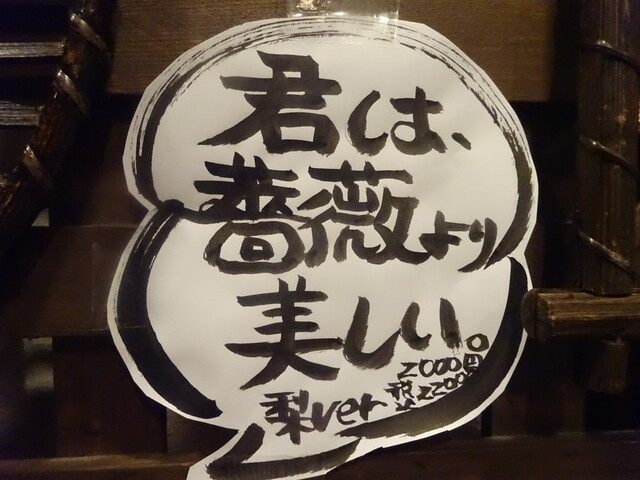 君は、
薔薇より
美しい。
梨ver
2000円
税込2200円